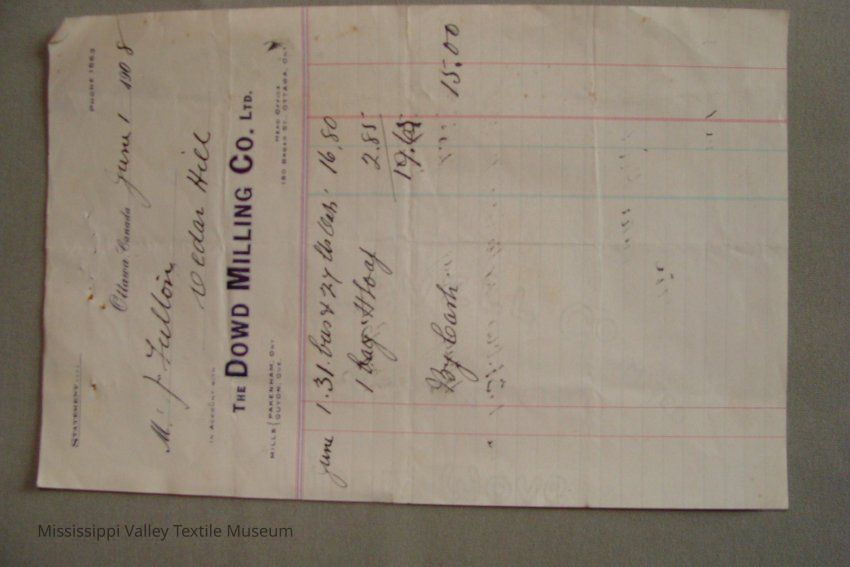 STATEMENT
PHONE 1563
Ottawa Canada June 1 1908
M. J Fulton
Cedar Hill
IN ACCOUNT WITH
THE DOWD MILLING CO. LTD.
MILLS { PAKENHAM, ONT.
QUYON, QUE.
HEAD OFFICE
OTTAWA, ONT.
June 1. 31. bus & 27 lbs Oats 16,80
1 bag H loaf 2.85
19.65
By Cash 15.00
Mississippi Valley Textile Museum